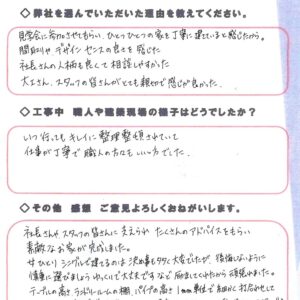 ◇弊社を選んでいただいた理由を教えてください。
見学会に参加させてもらい、ひとつひとつの家を丁寧に建てていると感じたから。
間取りやデザインセンスの良さを感じた
社長さんの人柄も良くて相談しやすかった
大工さん、スタッフの皆さんがとても親切で感じが良かった。
◇工事中 職人や建築現場の様子はどうでしたか？
いつ行ってもキレイに整理整頓されていて
仕事が丁寧で職人の方々もいい方でした。
◇その他 感想 ご意見よろしくおねがいします。
社長さんやスタッフの皆さんに支えられ たくさんのアドバイスをもらい
素敵なお家が完成しました。
ひとり シングルで建てるのは 決め事も多く大変でしたが 後悔しないように
慎重に選びましょう ゆっくりで大丈夫ですなど 励ましてくれたから頑張れました。
テーブルの高さ ランドリールームの棚、パイプの高さ 1mm単位で細かく打合せして